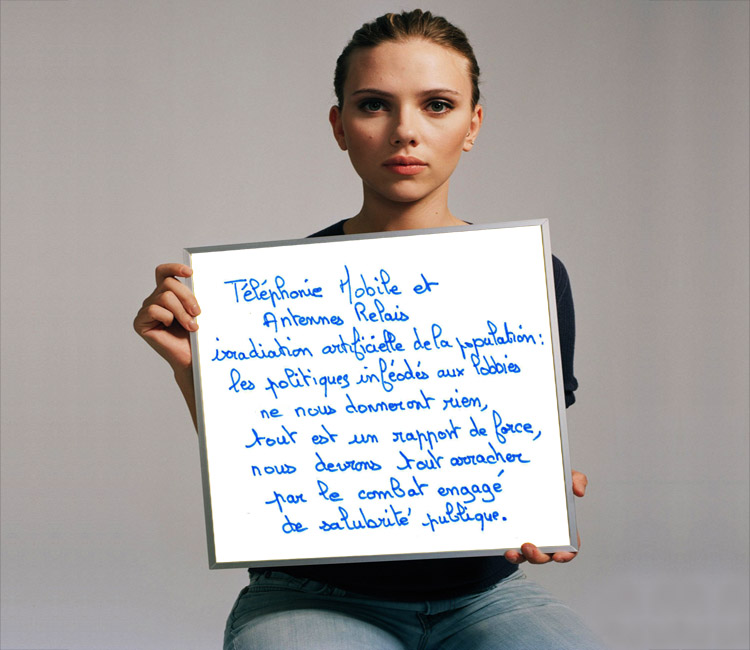 Téléphonie Mobile et
Antennes Relais
irradiation artificielle de la population :
les politiques inféodés aux lobbies
ne nous donneront rien,
tout est un rapport de force,
nous devrons tout arracher
par le combat engagé
de salubrité publique.